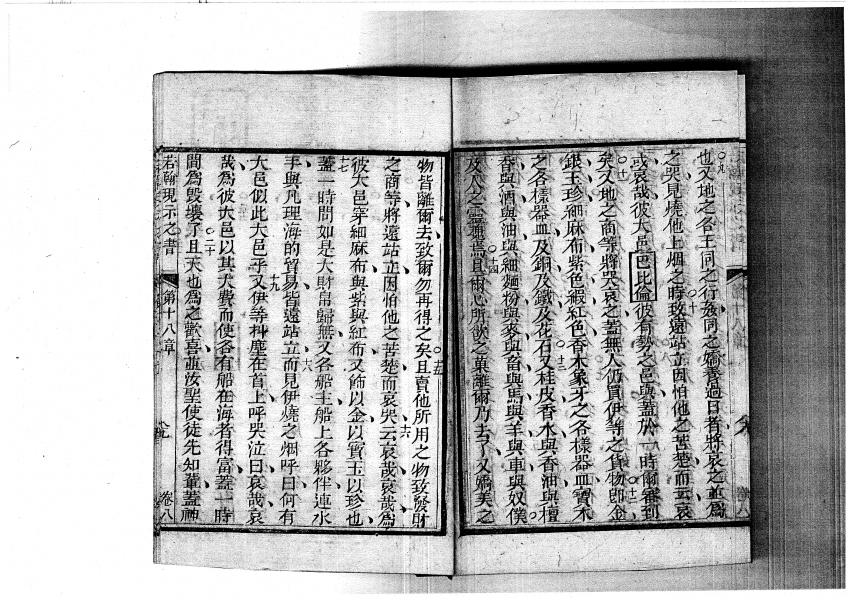 也又地之各王同之行姦同之嬌奢過日者將哀之並爲
之哭見燒他上烟之時致遠站立因怕他之苦楚而云哀
哉哀哉彼大邑巴比倫彼有勢之邑與蓋於一時爾審到
矣又地之商等將哭哀之蓋無人仍買伊等之貨物即金
銀玉珍細麻布紫色緞紅色香木象牙之各樣器皿寶木
之各樣器皿及銅及鐵及花石又桂皮香水與香油與檀
香與酒與油與細麵粉與麥與畜與馬與羊與車與奴僕
及人之靈魂焉且爾心所欲之菓離爾乃去了又嬌美之
物皆離爾去致爾勿再得之矣且賣他所用之物致發財
之商等將遠站立因怕他之苦楚而哀哭云哀哉哀哉爲
彼大邑穿細麻布與紫與紅布又飾以金以寶玉以珍也
蓋一時間如是大財帛歸無又各船主船上各夥伴連水
手與凡理海的貿易皆遠站立而見伊燒之烟呼曰何有
大邑似此大邑乎又伊等抖塵在首上呼哭泣曰哀哉哀
哉爲彼大邑以其大費而使各有船在海者得富蓋一時
間爲毀壞了且天也爲之歡喜並汝聖使徒先知輩蓋神
若翰現示之書 第十八章 卷八